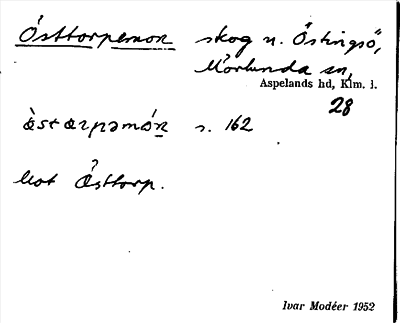 Östtorpemon skog n. Östingsö,
Mörlunda sn,
Aspelands hd, Klm. l.
28
àstarpəmón s. 162
Mot Östtorp.
Ivar Modéer 1952